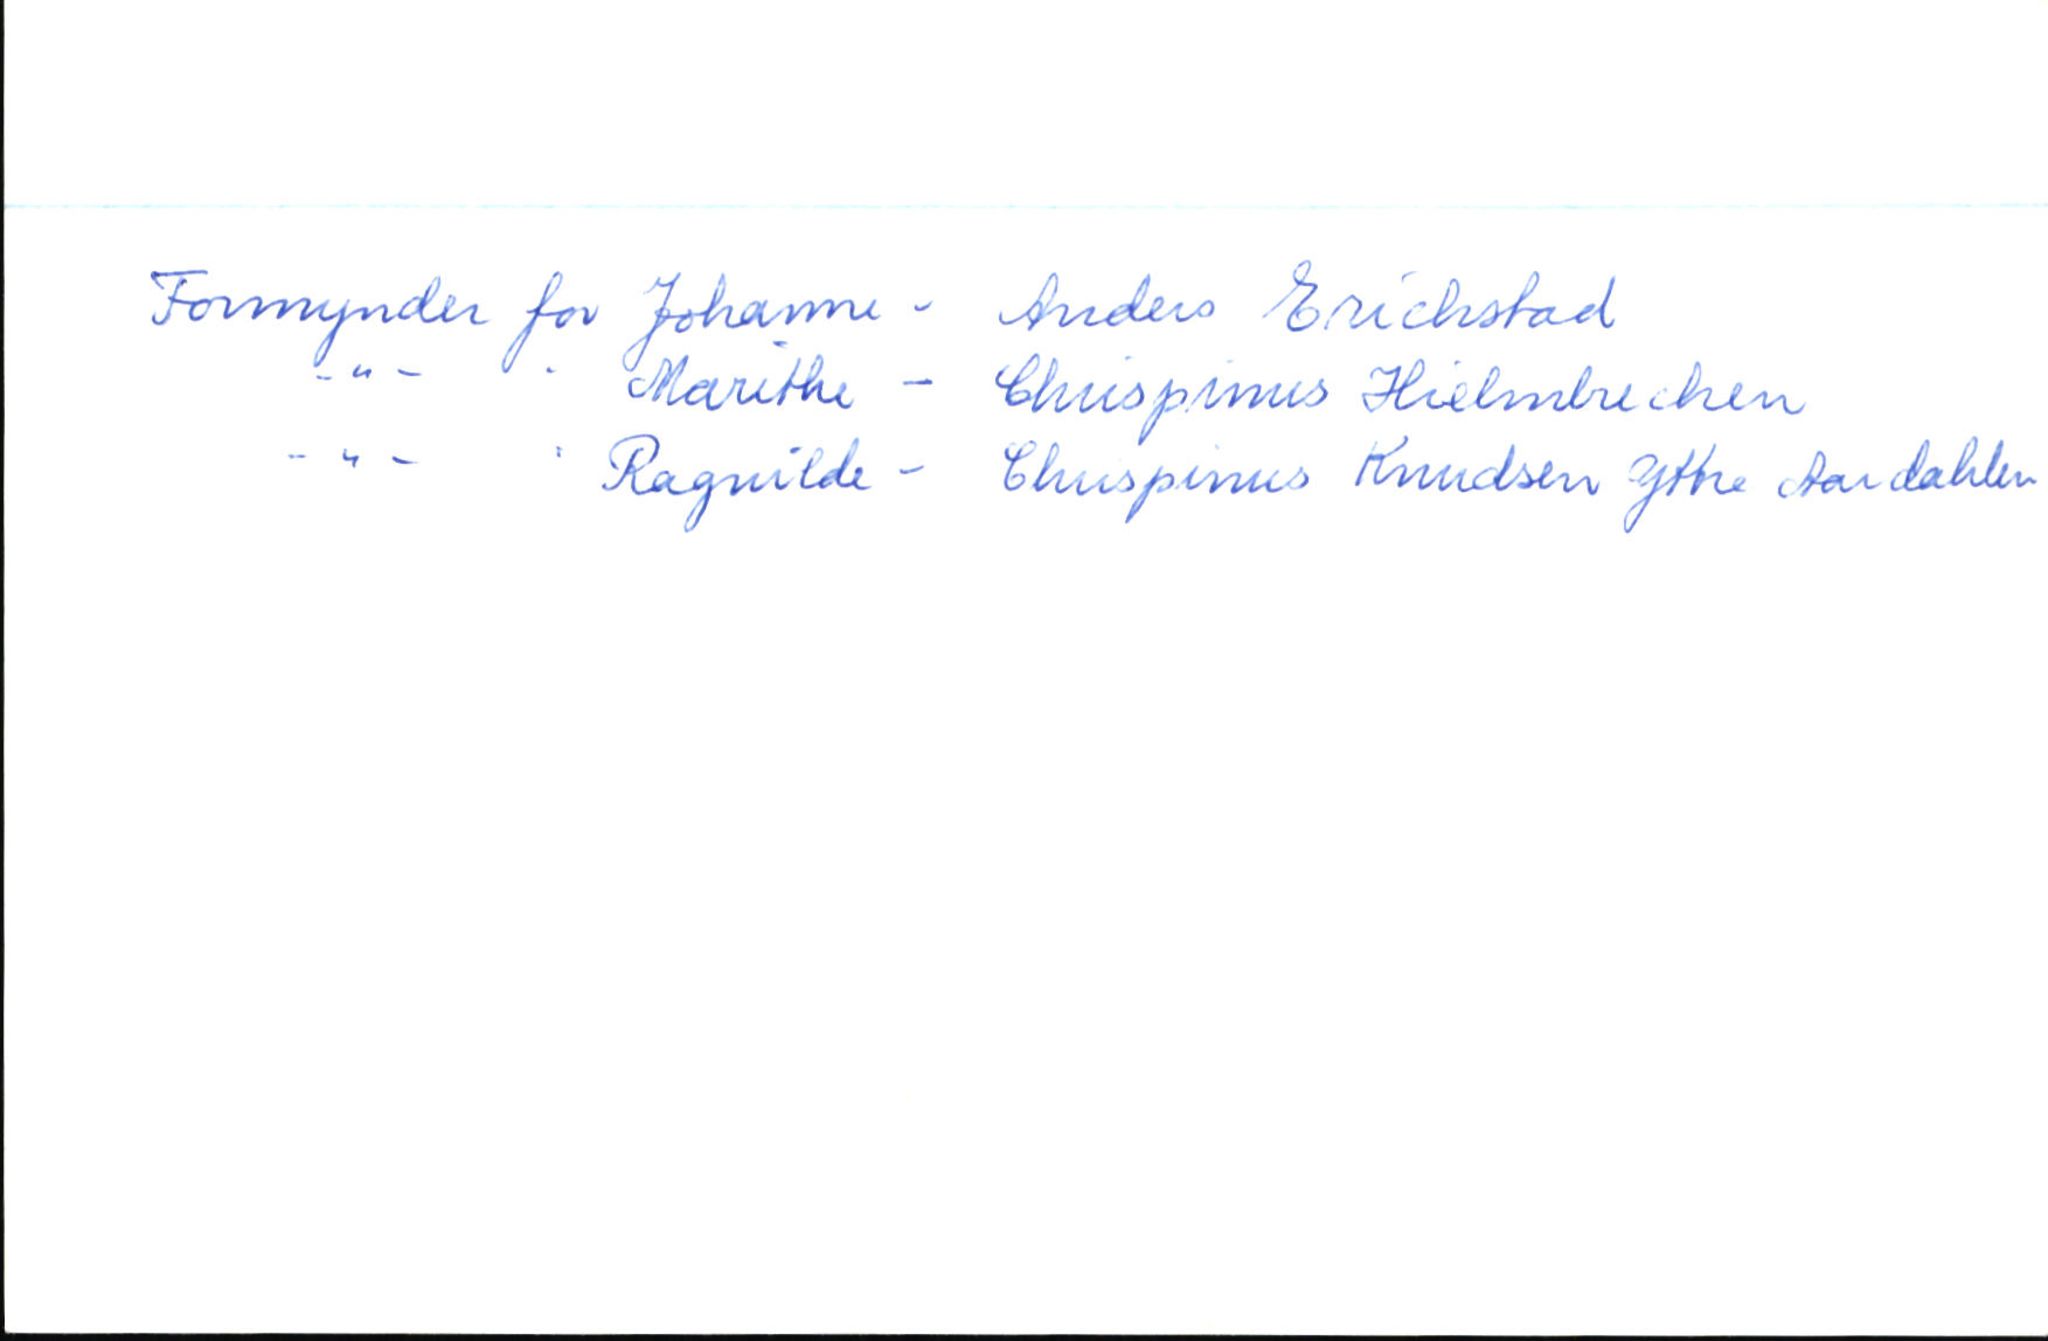 Formynder for Johanne - Anders Erichstad
- " - ' Marithe - Chrispinus Hielmbrechen
- " - ' Ragnilde - Chrispinus Knudsen Ythre Aardahlen